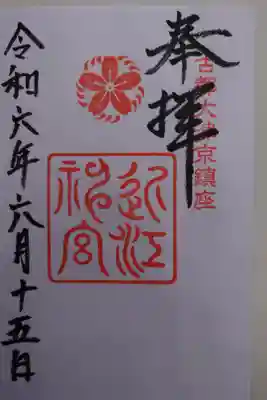 古都大津京鎮座
奉拝
近江
神宮
令和六年六月十五日